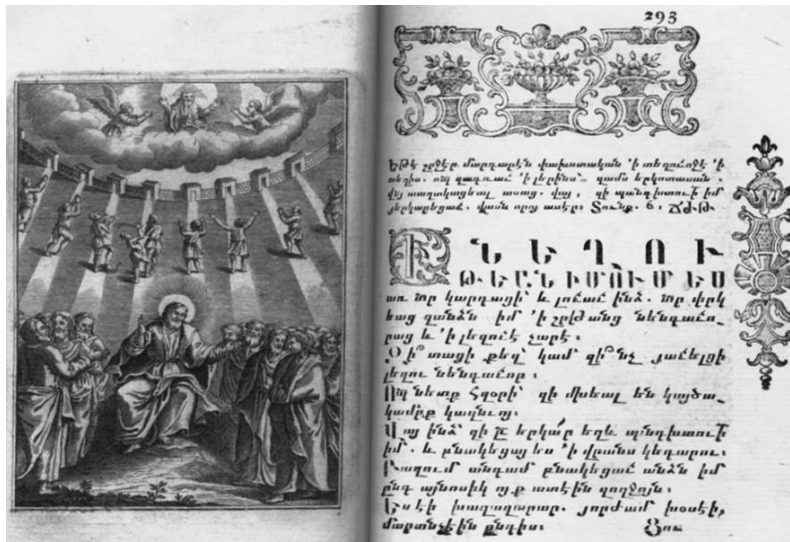 293
Եթէ շրջէր մարդարէն փախստական ՚ի տեղւոջէ ՚ի
տեղիս. ՚ի լերինս՝ զամս երկոտասան.
տաղտկացեալ ասաց. վայ, զի պանդխտուի իմ
յերկարեցաւ. վասն որոյ ասէր։ Տունք. 6. ՃԺԹ.
Ի ՆԵՂՈՒ
ԹԵԱՆ ԻՄՈՒՄ ԵՍ
առ տր կարդացի՝ և լուաւ ինձ. տր փրկ
եաց զանձն իմ՝ ՚ի շրթանց նենգաւո֊
րաց և ՚ի լեզուէ չարէ։
Զի՞ տացի քեզ՝ կամ զի՞նչ յաւելցի
լեզու նենգաւոր։
նետք հզօրի՝ զի մխեալ են կայծա֊
կամբք կաղնւոյ։
Վայ ինձ՝ զի երկար եղև պնդխտուի
իմ. և բնակեցայ ես ՚ի վրանս կեդարու։
Բազում անգամ բնակեցաւ անձն իմ
ընդ այնոսիկ ոյք ատէին զողջոյն։
Ես էի խաղաղարար. յորժամ խօսէի,
մարտնչէին ընդիս։